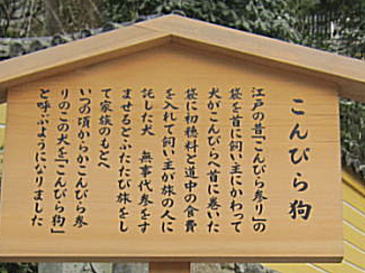 こんぴら狗
江戸の昔「こんぴら参り」の
袋を首に飼い主にかわって
犬がこんぴらへ首に巻いた
袋に初穂料と道中の食費
を入れて飼い主が旅の人に
託した犬 無事代参をす
ませるとふたたび旅をし
て家族のもとへ
いつの頃からかこんぴら参
りのこの犬を「こんぴら狗」
と呼ぶようになりました